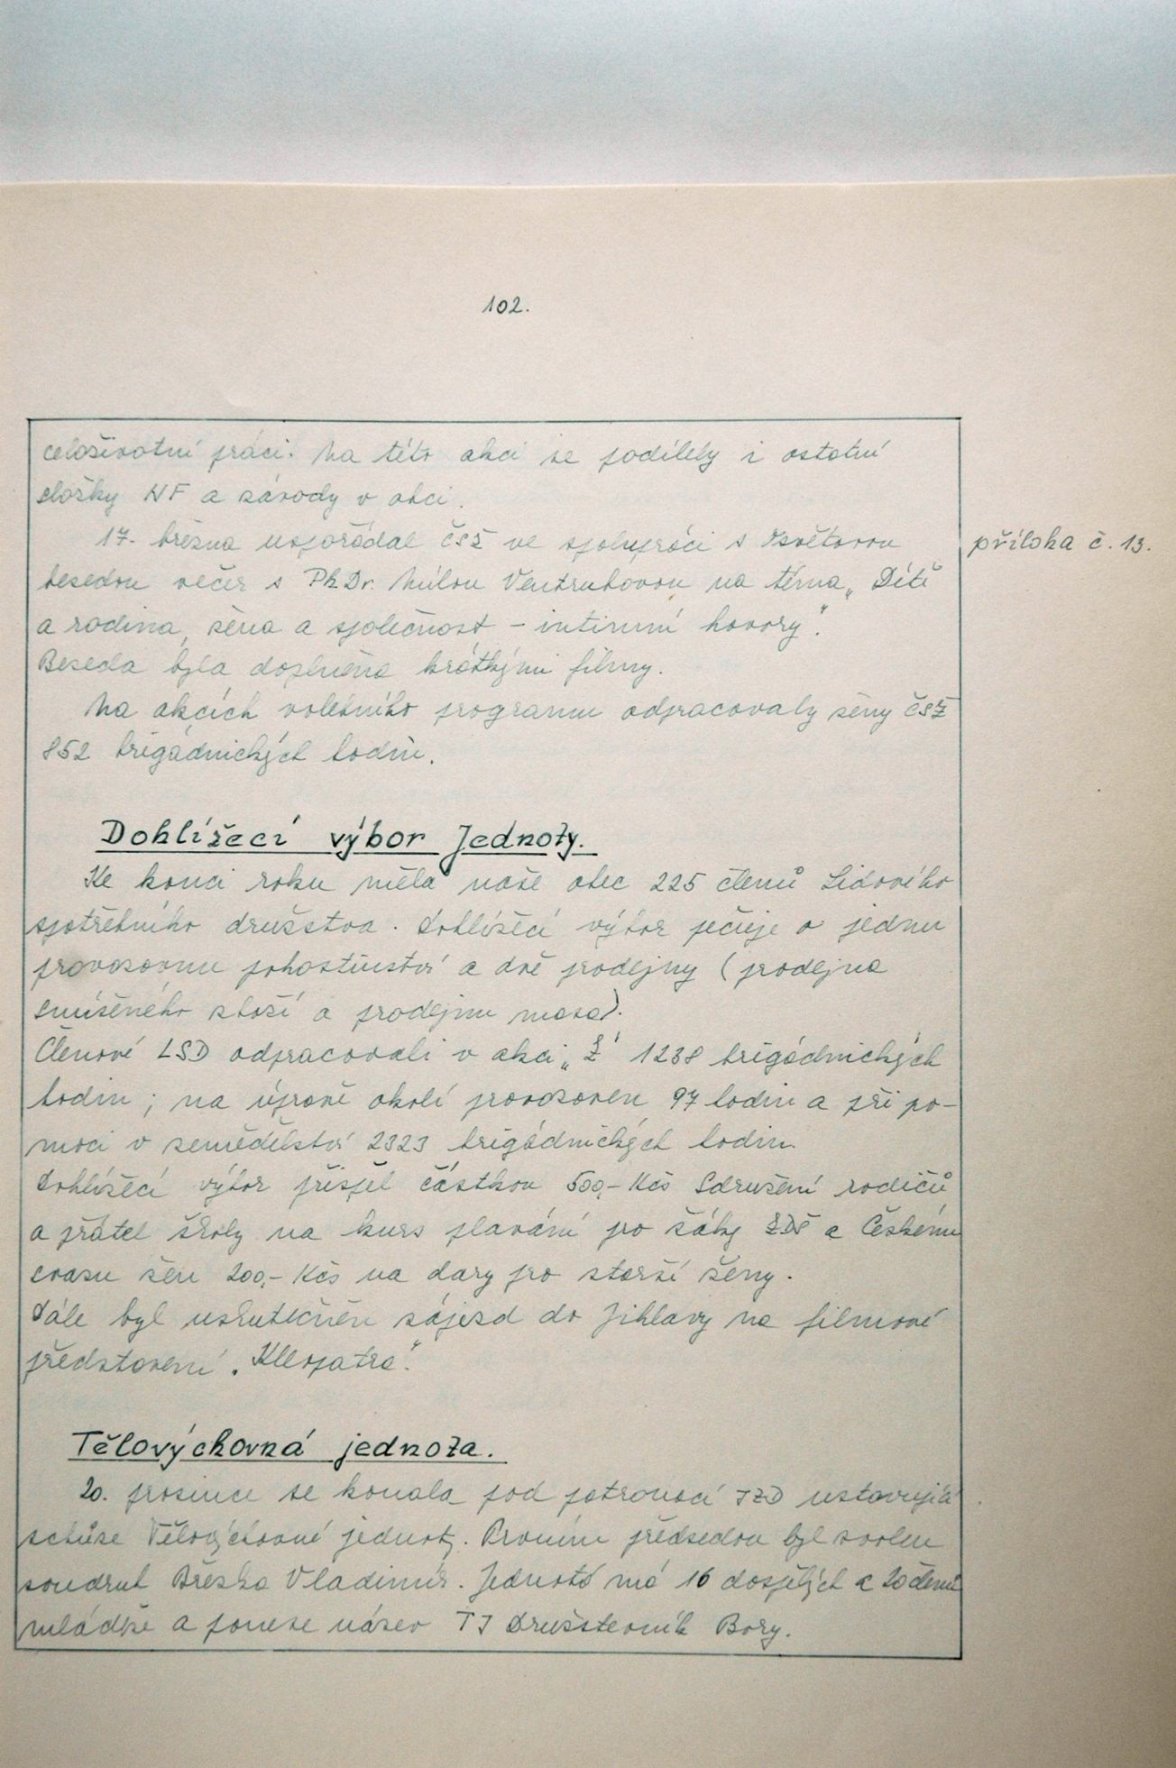 102.
celoživotní práci. Na této akci se podílely i ostatní
složky NF a závody v obci.
17. března uspořádal ČSŽ ve spolupráci s Osvětovou
příloha č. 13.
besedou večer s PhDr. Mílou Ventrubovou na téma „Dítě
a rodina, žena a společnost - intimní hovory".
Beseda byla doplněna krátkými filmy.
Na akcích volebního programu odpracovaly ženy ČSŽ
852 brigádnických hodin.
Dohlížecí výbor Jednoty.
Ke konci roku měla naše obec 225 členů Lidového
spotřebního družstva. Dohlížecí výbor pečuje o jednu
provozovnu pohostinství a dvě prodejny (prodejna
smíšeného zboží a prodejnu masa).
Členové LSD odpracovali v akci „Z" 1238 brigádnických
hodin; na úpravě okolí provozoven 97 hodin a při po-
moci v zemědělství 2323 brigádnických hodin.
Dohlížecí výbor přispěl částkou 500,- Kčs Sdružení rodičů
a přátel školy na kurs plavání pro žáky ZDŠ a Českému
svazu žen 200,- Kčs na dary pro starší ženy.
Dále byl uskutečněn zájezd do Jihlavy na filmové
představení „Kleopatra".
Tělovýchovná jednota.
20. prosince se konala pod patronací JZD ustavující
schůze Tělovýchovné jednoty. Prvním předsedou byl zvolen
soudruh Březka Vladimír. Jednota má 16 dospělých a 20 členů
mládeže a ponese název TJ Družstevník Bory.